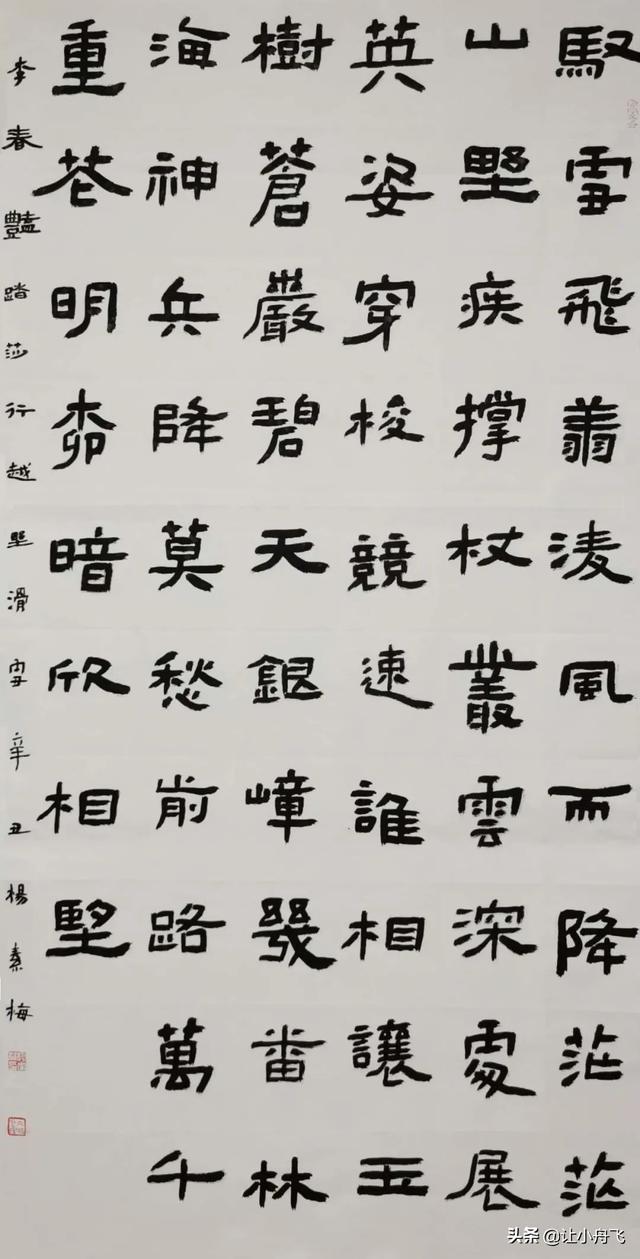 馭雪飛翔淩風而降茫茫
山野疾撐杖叢雲深處展
英姿穿梭競速誰相讓玉
樹蒼巖碧天銀嶂幾番林
海神兵降莫愁前路萬千
重花明桺暗欣相望
李春豔踏莎行越野滑雪辛丑楊素梅
头条 @让小舟飞